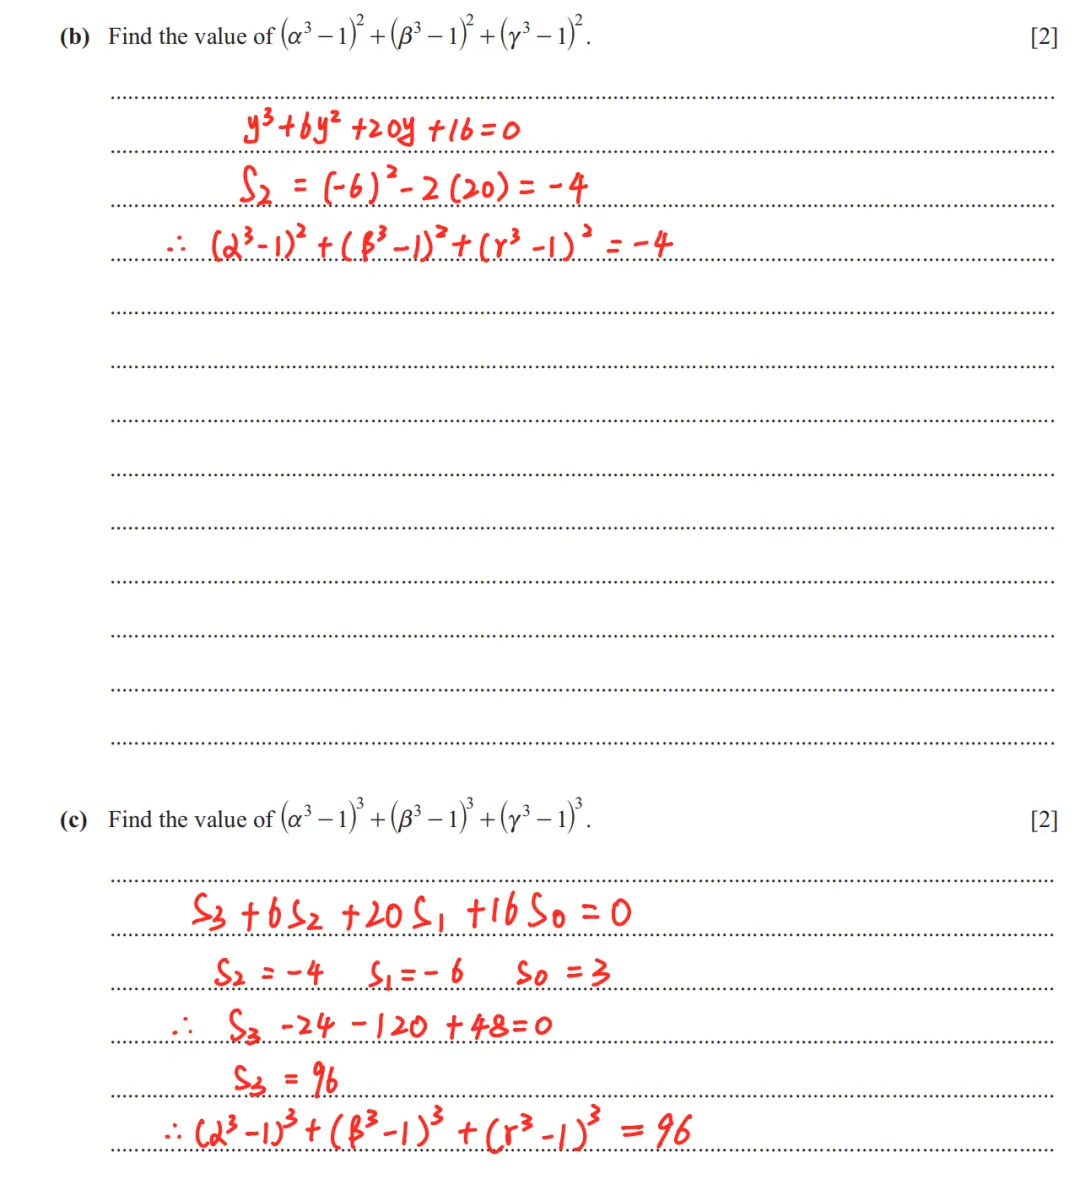 (b) Find the value of (α³ − 1)² + (β³ − 1)² + (γ³ − 1)². [2]
y³ + 6y² + 20y + 16 = 0
S₂ = (-6)² - 2(20) = -4
∴ (α³-1)² + (β³-1)² + (γ³-1)² = -4
(c) Find the value of (α³ − 1)³ + (β³ − 1)³ + (γ³ − 1)³. [2]
S₃ + 6S₂ + 20S₁ + 16S₀ = 0
S₂ = -4 S₁ = -6 S₀ = 3
∴ S₃ -24 -120 +48 = 0
S₃ = 96
∴ (α³-1)³ + (β³-1)³ + (γ³-1)³ = 96